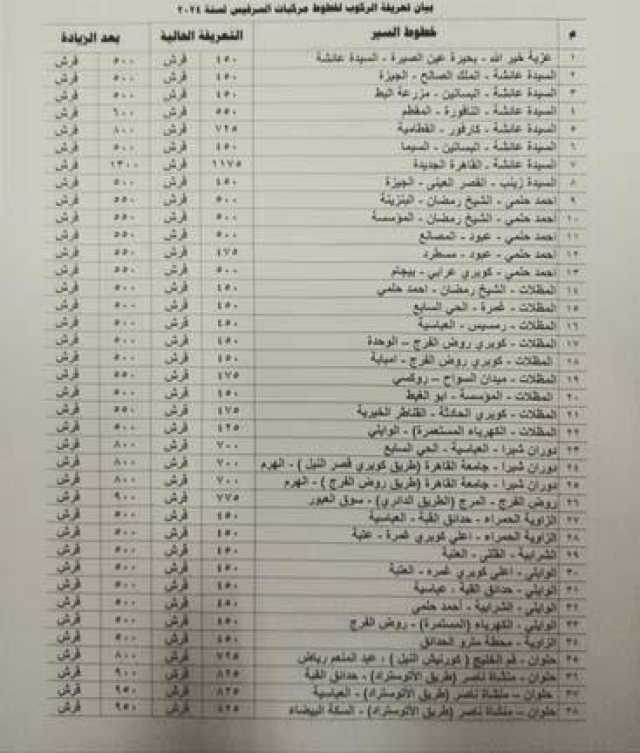 بيان تعريفة الركوب لخطوط مركبات السرفيس لسنة ٢٠٢٤
م خطوط السير التعريفة الحالية بعد الزيادة
١ عزبة خير الله - بحيرة عين الصيرة - السيدة عائشة ٤٥٠ قرش ٥٠٠ قرش
٢ السيدة عائشة - الملك الصالح - الجيزة ٤٥٠ قرش ٥٠٠ قرش
٣ السيدة عائشة - البساتين - مزرعة البط ٤٥٠ قرش ٥٠٠ قرش
٤ السيدة عائشة - النافورة - المقطم ٥٥٠ قرش ٦٠٠ قرش
٥ السيدة عائشة - كارفور - القطامية ٧٢٥ قرش ٨٠٠ قرش
٦ السيدة عائشة - البساتين - السيما ٤٥٠ قرش ٥٠٠ قرش
٧ السيدة عائشة - القاهرة الجديدة ١١٧٥ قرش ١٣٠٠ قرش
٨ السيدة زينب - القصر العينى - الجيزة ٤٥٠ قرش ٥٠٠ قرش
٩ احمد حلمي - الشيخ رمضان - البنزينة ٥٠٠ قرش ٥٥٠ قرش
١٠ احمد حلمي - الشيخ رمضان - المؤسسة ٥٠٠ قرش ٥٥٠ قرش
١١ احمد حلمي - عبود - المصانع ٥٠٠ قرش ٥٥٠ قرش
١٢ احمد حلمي - عبود - مسطرد ٤٧٥ قرش ٥٥٠ قرش
١٣ احمد حلمي - كوبري عرابي - بيجام ٥٠٠ قرش ٥٥٠ قرش
١٤ المظلات - الشيخ رمضان - احمد حلمي ٤٥٠ قرش ٥٠٠ قرش
١٥ المظلات - غمرة - الحي السابع ٤٥٠ قرش ٥٠٠ قرش
١٦ المظلات - رمسيس - العباسية ٤٥٠ قرش ٥٠٠ قرش
١٧ المظلات - كوبري روض الفرج – الوحدة ٤٥٠ قرش ٥٠٠ قرش
١٨ المظلات - كوبري روض الفرج - امبابة ٤٥٠ قرش ٥٠٠ قرش
١٩ المظلات - ميدان السواح – روكسي ٤٧٥ قرش ٥٥٠ قرش
٢٠ المظلات - المؤسسة - ابو الغيط ٤٥٠ قرش ٥٠٠ قرش
٢١ المظلات - كوبري الحادثة - القناطر الخيرية ٤٧٥ قرش ٥٥٠ قرش
٢٢ المظلات - الكهرباء المستعمرة) - الوايلي ٤٢٥ قرش ٥٠٠ قرش
٢٣ دوران شبرا - العباسية - الحي السابع ٧٠٠ قرش ٨٠٠ قرش
٢٤ دوران شبرا - جامعة القاهرة (طريق كوبري قصر النيل ) - الهرم ٧٠٠ قرش ٨٠٠ قرش
٢٥ دوران شبرا - جامعة القاهرة (طريق روض الفرج ) - الهرم ٧٠٠ قرش ٨٠٠ قرش
٢٦ روض الفرج - المرج (الطريق الدائري) - سوق العبور ٧٧٥ قرش ٩٠٠ قرش
٢٧ الزاوية الحمراء - حدائق القبة - العباسية ٤٥٠ قرش ٥٠٠ قرش
٢٨ الزاوية الحمراء - اعلي كوبري غمرة - عتبة ٤٥٠ قرش ٥٠٠ قرش
٢٩ الشرابية - القللى - العتبة ٤٥٠ قرش ٥٠٠ قرش
٣٠ الوايلي - اعلي كوبري غمره - العتبة ٤٥٠ قرش ٥٠٠ قرش
٣١ الوايلي - حدائق القبة ، عباسية ٤٥٠ قرش ٥٠٠ قرش
٣٢ الوايلي - الشرابية - أحمد حلمي ٤٥٠ قرش ٥٠٠ قرش
٣٣ الوايلي - الكهرباء (المستمرة) - روض الفرج ٤٥٠ قرش ٥٠٠ قرش
٣٤ الزاوية - محطة مترو الحدائق ٤٥٠ قرش ٥٠٠ قرش
٣٥ حلوان - فم الخليج ( كورنيش النيل ) ، عبد المنعم رياض ٧٢٥ قرش ٨٠٠ قرش
٣٦ حلوان - منشاة ناصر (طريق الأتوستراد) - حدائق القبة ٨٢٥ قرش ٩٠٠ قرش
٣٧ حلوان – منشاة ناصر (طريق الأتوستراد) - العباسية ٨٢٥ قرش ٩٥٠ قرش
٣٨ حلوان – منشاة ناصر (طريق الأتوستراد) - السكة البيضاء ٨٢٥ قرش ٩٥٠ قرش